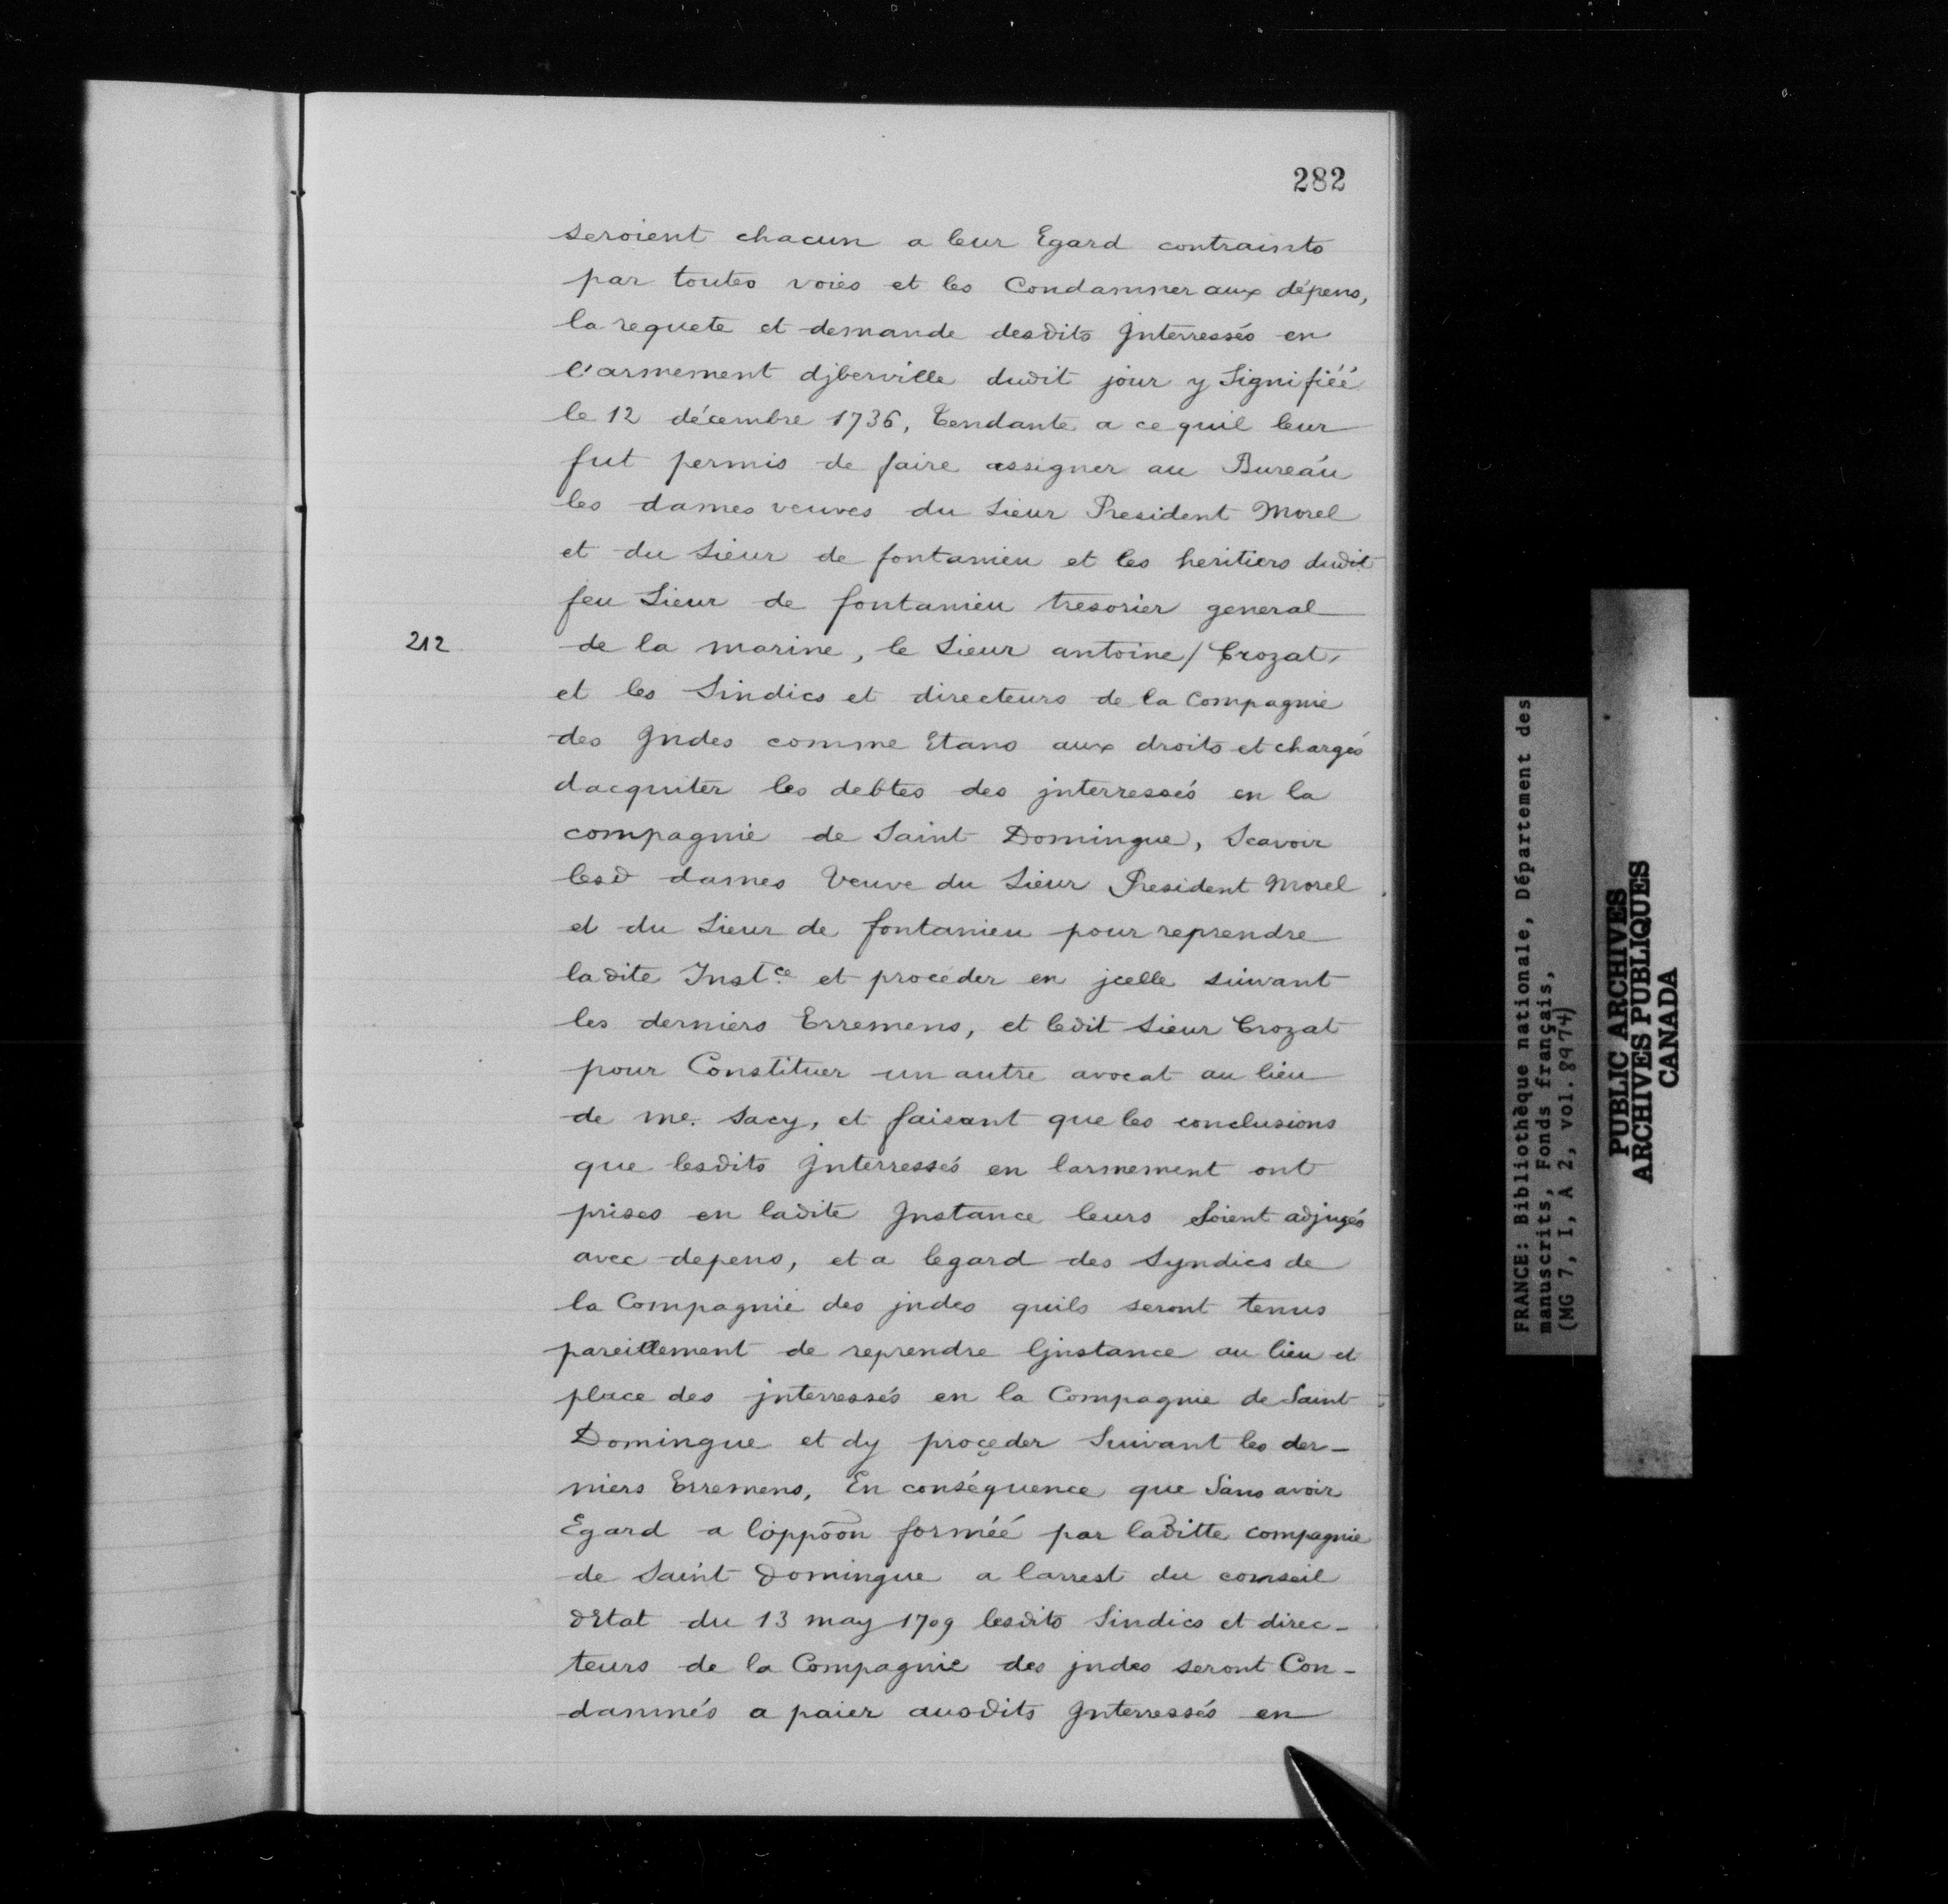 282
seroient chacun a leur Egard contraints
par toutes voies et les Condamner aux dépens,
la requete et demande desdits Jnterressés en
l'armement djberville dudit jour y Signifiéé
le 12 décembre 1736, Tendante a ce quil leur
fut permis de faire assigner au Bureau
les dames veuves du Sieur President Morel
et du Sieur de fontanieu et les heritiers dudit
feu Sieur de fontanieu tresorier general
212
de la marine, le Sieur antoine / Crozat,
et les Sindics et directeurs de la Compagnie
des Jndes comme Etans aux droits et chargés
dacquiter les debtes des jnterressés en la
compagnie de Saint Domingue, Scavoir
lesd dames Veuve du Sieur President Morel
et du Sieur de fontanieu pour reprendre
ladite Inst.ce et proceder en jcelle suivant
les derniers Erremens, et ledit Sieur Crozat
pour Constituer un autre avocat au lieu
de me. Sacy, et faisant que les conclusions
que lesdits Jnterressés en larmement ont
prises en ladite Jnstance leurs Soient adjugés
avec depens, et a legard des Syndics de
la Compagnie des jndes quils seront tenus
pareillement de reprendre ljnstance au lieu et
place des jnterressés en la Compagnie de Saint
Domingue et dy proçeder Suivant les der-
niers Erremens, En conséquence que Sans avoir
Egard a loppõon forméé par laditte compagnie
de Saint Domingue a larrest du conseil
dEtat du 13 may 1709 lesdits Sindics et direc-
teurs de la Compagnie des jndes seront Con-
damnés a paier ausdits Jnterressés en
FRANCE: Bibliothèque nationale, Département des
manuscrits, Fonds français,
(MG 7, I, A 2, vol. 8974)
PUBLIC ARCHIVES
ARCHIVES PUBLIQUES
CANADA